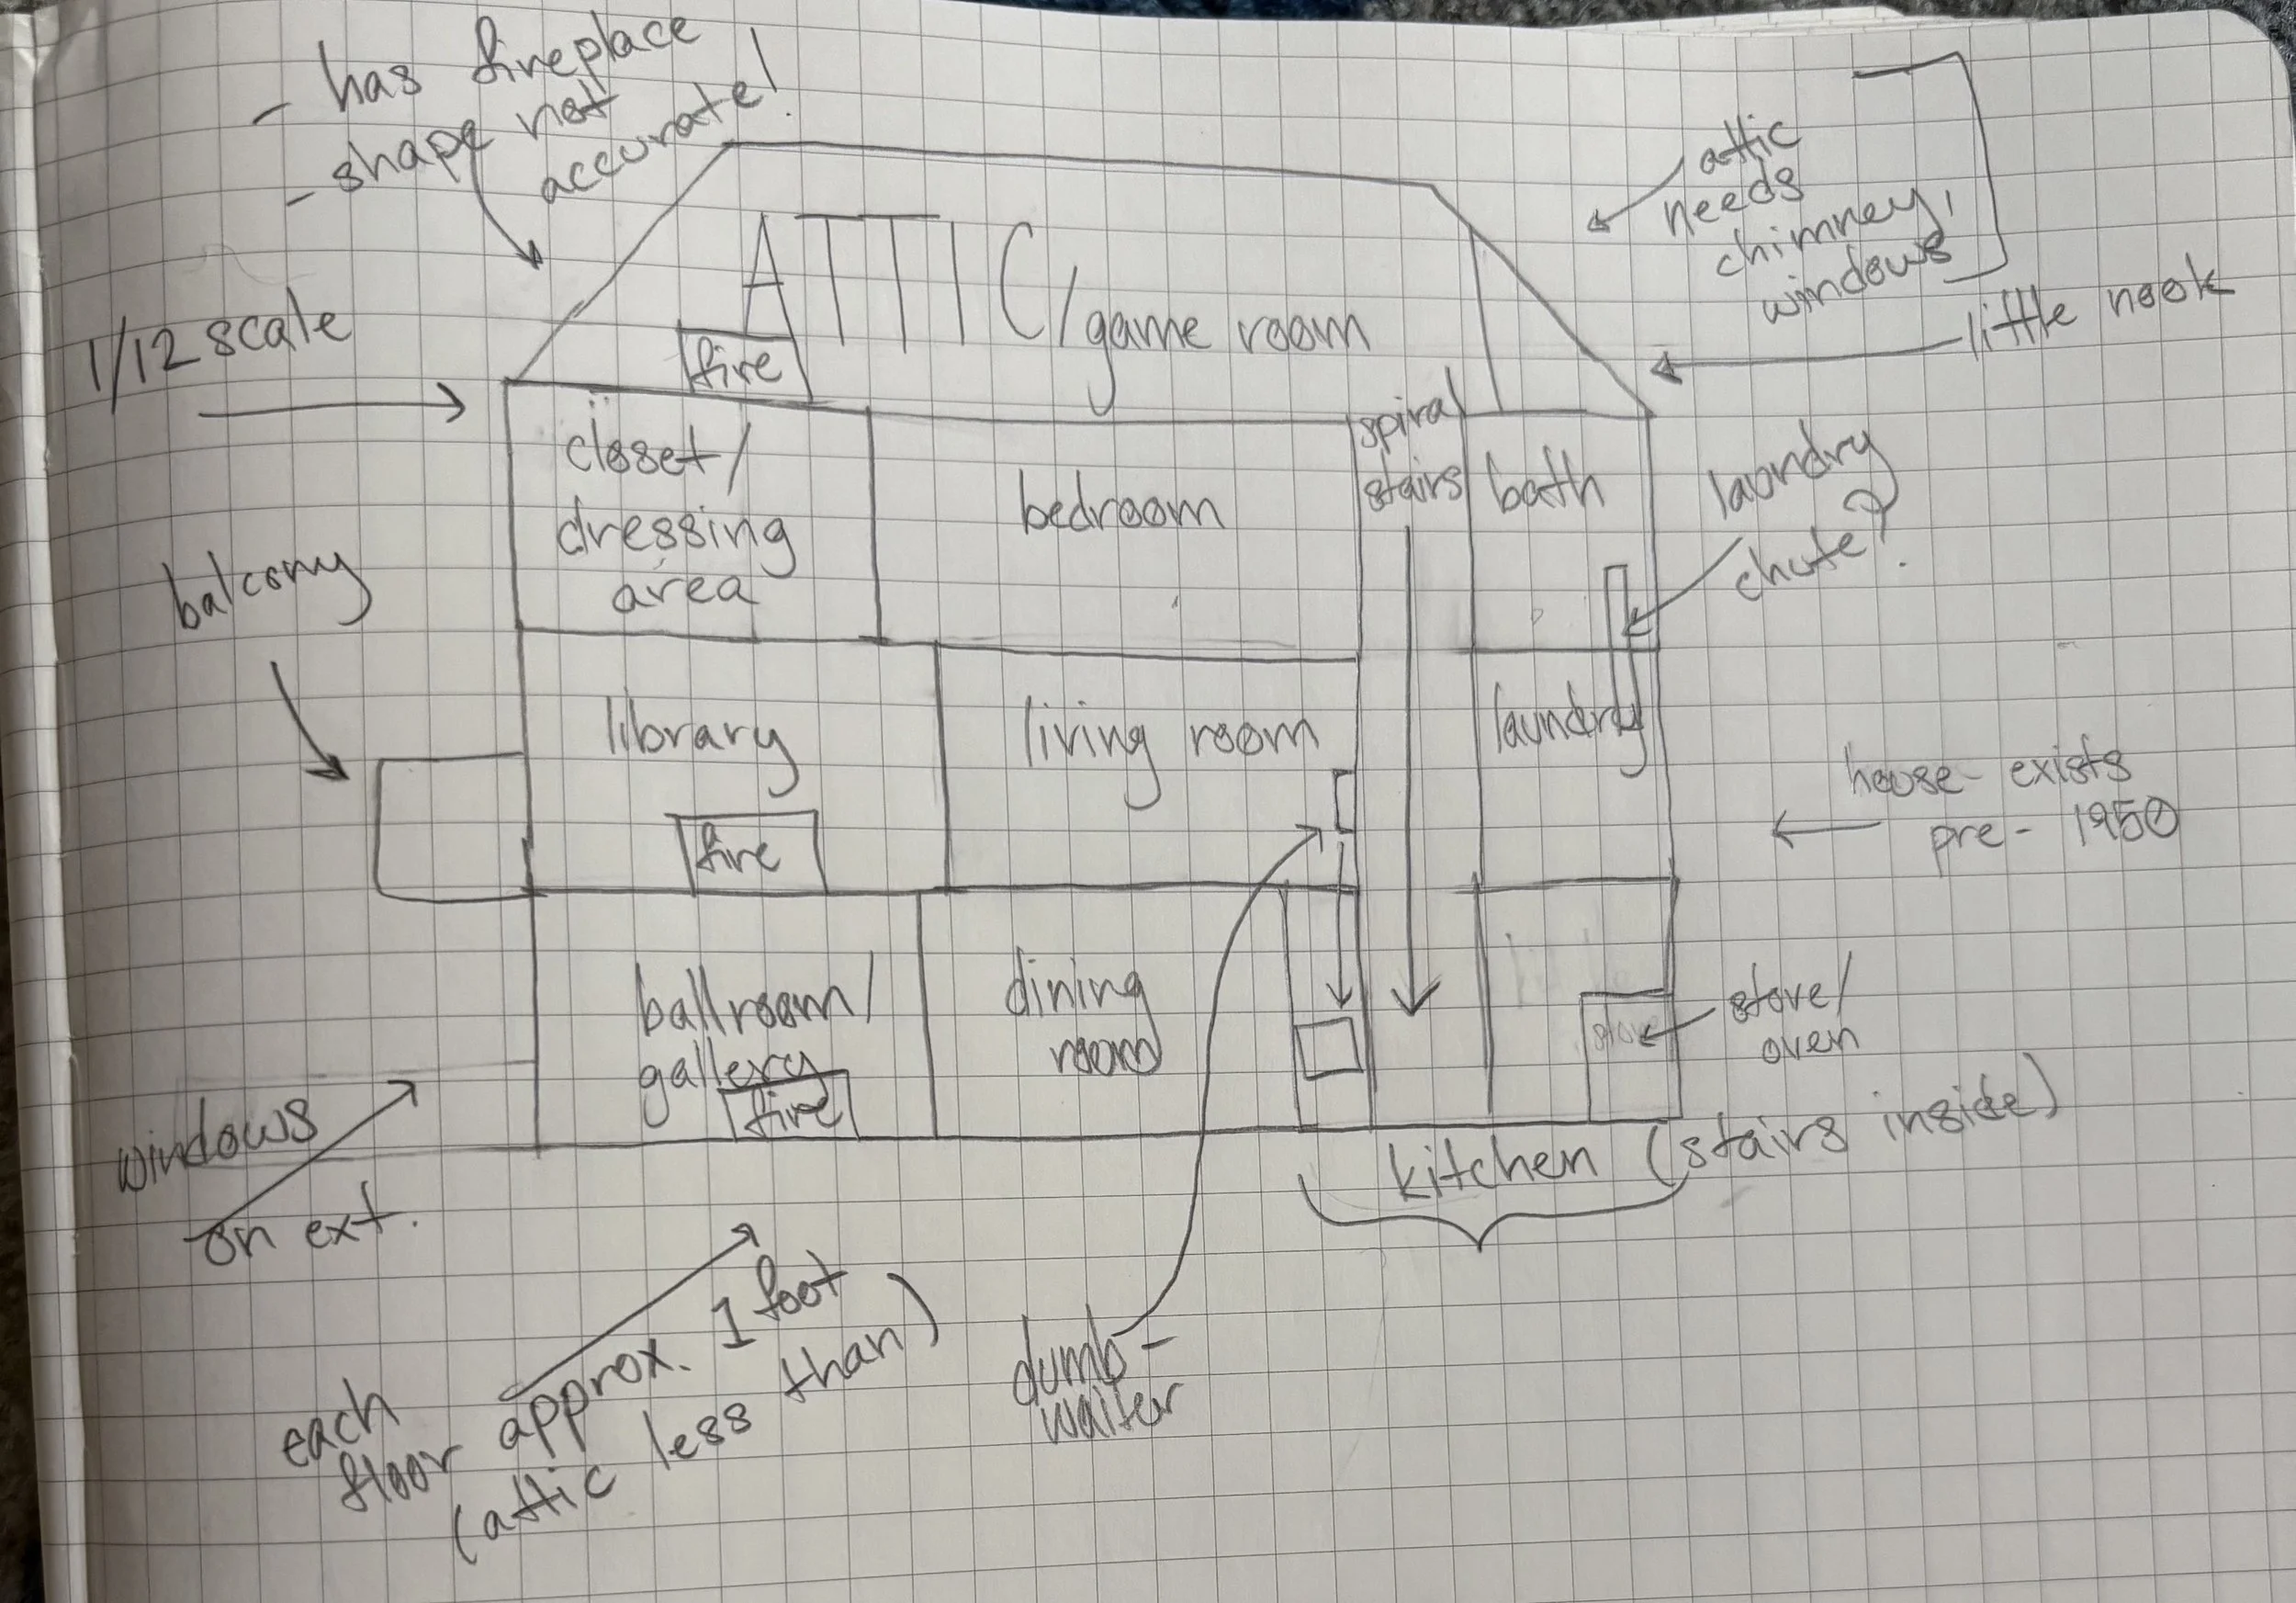 - has fireplace
- shape not
accurate!
attic
needs
chimney,
windows
little nook
1/12 scale
ATTIC/game room
fire
closet/
dressing
area
bedroom
spiral
stairs
bath
laundry
chute?
balcony
library
living room
laundry
fire
house - exists
pre - 1950
ballroom/
gallery
fire
dining
room
stove
stove/
oven
windows
on ext.
kitchen (stairs inside)
dumb-
waiter
each
floor approx. 1 foot
(attic less than)